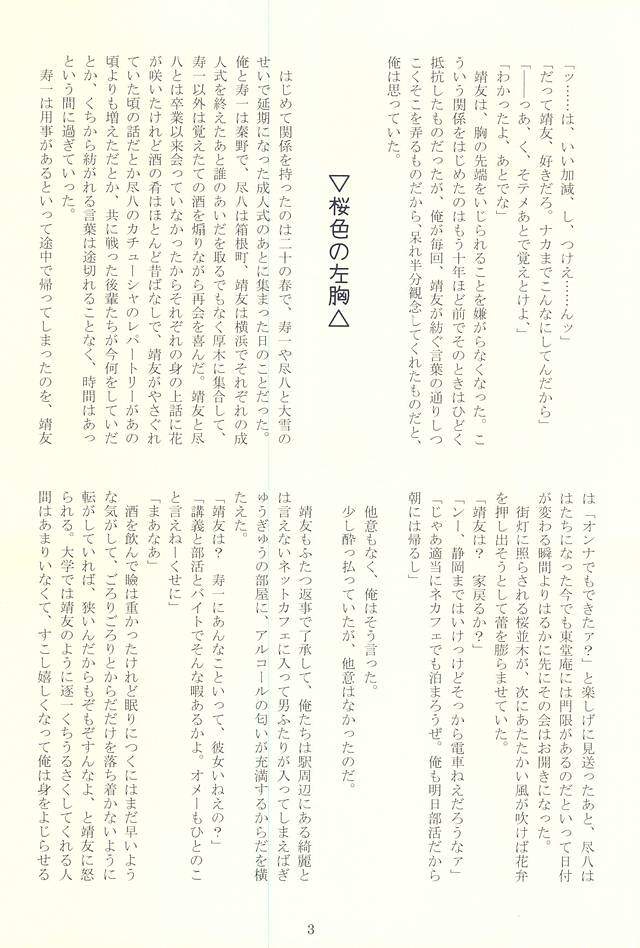 「ッ……は、いい加減、し、つけえ……んッ」
「だって靖友、好きだろ。ナカまでこんなにしてんだから」
「――っあ、く、そテメあとで覚えとけよ」
「わかったよ、あとでな」
靖友は、胸の先端をいじられることを嫌がらなくなった。こ
ういう関係をはじめたのはもう十年ほど前でそのときはひどく
抵抗したものだったが、俺が毎回、靖友が紡ぐ言葉の通りしつ
こくそこを弄るものだから、呆れ半分観念してくれたものだと、
俺は思っていた。
▽桜色の左胸△
はじめて関係を持ったのは二十の春で、寿一や尽八と大雪の
せいで延期になった成人式のあとに集まった日のことだった。
俺と寿一は秦野で、尽八は箱根町、靖友は横浜でそれぞれの成
人式を終えたあと誰のあいだを取るでもなく厚木に集合して、
寿一以外は覚えたての酒を煽りながら再会を喜んだ。靖友と尽
八とは卒業以来会っていなかったからそれぞれの身の上話に花
が咲いたけれど酒の肴はほとんど昔ばなしで、靖友がやさぐれ
ていた頃の話だとか尽八のカチューシャのレパートリーがあの
頃よりも増えただとか、共に戦った後輩たちが今何をしていだ
とか、くちから紡がれる言葉は途切れることなく、時間はあっ
という間に過ぎていった。
寿一は用事があるといって途中で帰ってしまったのを、靖友
は「オンナでもできたァ？」と楽しげに見送ったあと、尽八は
はたちになった今でも東堂庵には門限があるのだといって日付
が変わる瞬間よりはるかに先にその会はお開きになった。
街灯に照らされる桜並木が、次にあたたかい風が吹けば花弁
を押し出そうとして蕾を膨らませていた。
「靖友は？　家戻るか？」
「ンー、静岡まではいけっけどそっから電車ねえだろうなァ」
「じゃあ適当にネカフェでも泊まろうぜ。俺も明日部活だから
朝には帰るし」
他意もなく、俺はそう言った。
少し酔っ払っていたが、他意はなかったのだ。
靖友もふたつ返事で了承して、俺たちは駅周辺にある綺麗と
は言えないネットカフェに入って男ふたりが入ってしまえばぎ
ゅうぎゅうの部屋に、アルコールの匂いが充満するからだを横
たえた。
「靖友は？　寿一にあんなこといって、彼女いねえの？」
「講義と部活とバイトでそんな暇あるかよ。オメーもひとのこ
と言えねーくせに」
「まあなあ」
酒を飲んで瞼は重かったけれど眠りにつくにはまだ早いよう
な気がして、ごろりごろりとからだだけを落ち着かないように
転がしていれば、狭いんだからもぞもぞすんなよ、と靖友に怒
られる。大学では靖友のように逐一くちうるさくしてくれる人
間はあまりいなくて、すこし嬉しくなって俺は身をよじらせる
3